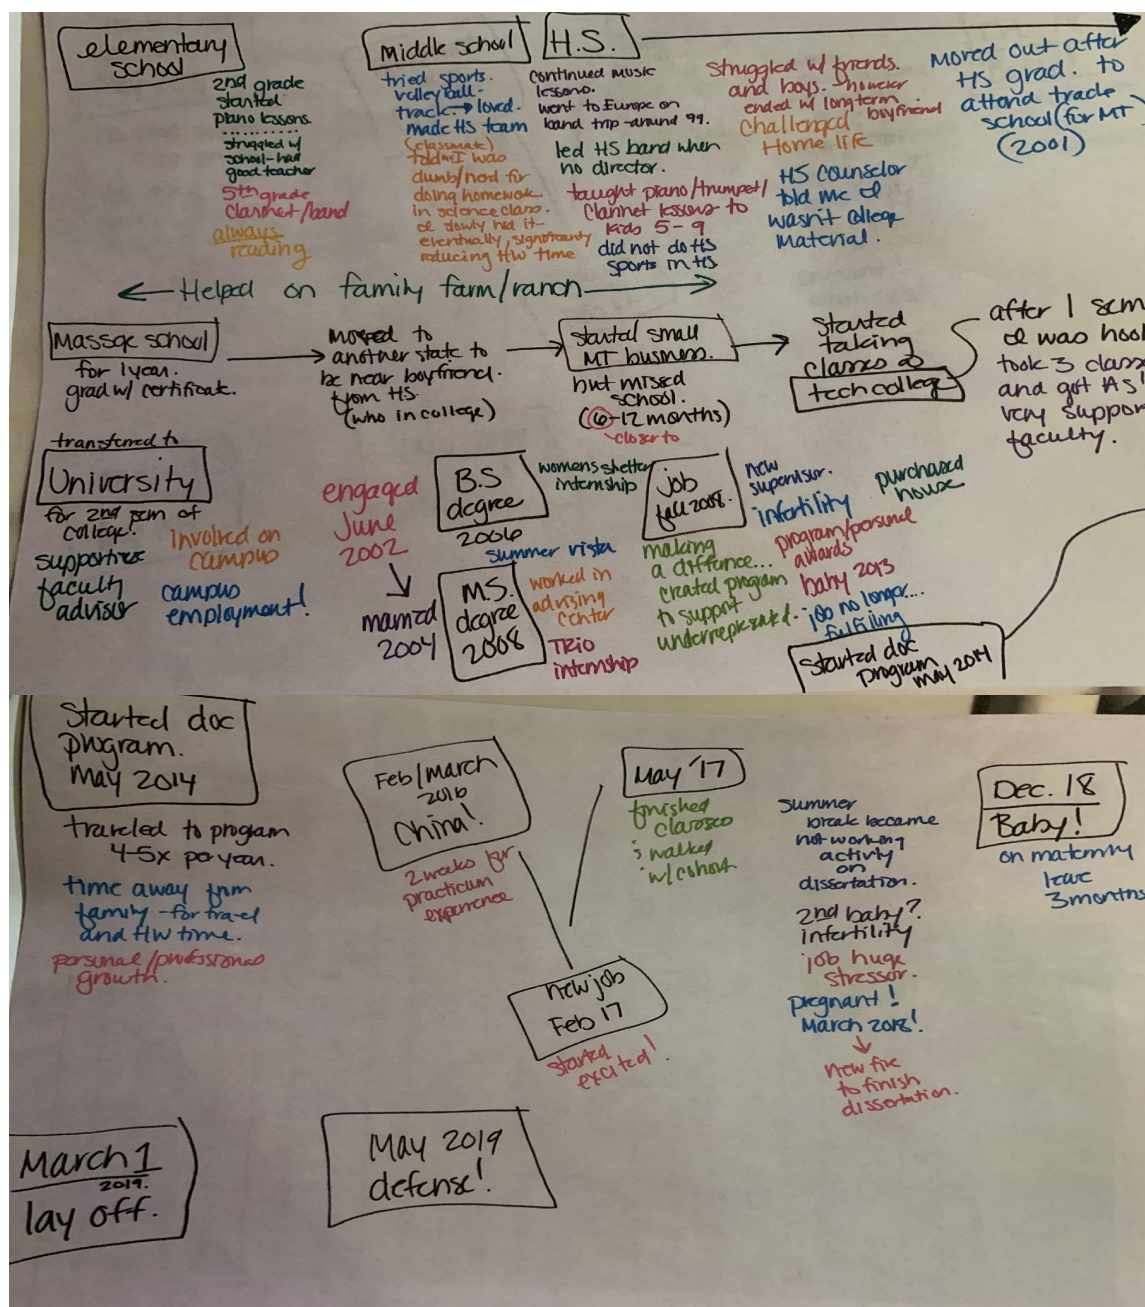 elementary
school
2nd grade
started
piano lessons.
struggled w/
school-had
good teacher
5th grade
clarinet/band
always
reading
Middle school
tried sports.
volleyball-
track → loved.
made HS team
(classmate)
told me I was
dumb/nerd for
doing homework
in science class.
I slowly hid it-
eventually, significantly
reducing HW time
H.S.
continued music
lessons.
went to Europe on
band trip-around 99.
led HS band when
no director.
taught piano/trumpet/
clarinet lessons to
kids 5-9
did not do HS
sports in HS
struggled w/ friends.
and boys. however
ended w/ long term
boyfriend
challenged
Home life
HS counselor
told me I
wasn't college
material.
moved out after
HS grad. to
attend trade
school (for MT)
(2001)
← Helped on family farm/ranch →
Massage school
for 1 year.
grad w/ certificate.
moved to
another state to
be near boyfriend.
from HS.
(who in college)
started small
MT business.
but missed
school.
(6-12 months)
closer to
started
taking
classes @
tech college
after 1 sem
I was hook
took 3 classe
and got AS!
very support
faculty.
transferred to
University
for 2nd sem of
college!
supportive
faculty
advisor
involved on
campus
campus
employment!
engaged
June
2002
married
2004
B.S
degree
2006
womens shelter
internship
summer vista
M.S.
degree
2008
worked in
advising
center
TRIO
internship
job
fall 2008.
making
a diffance...
created program
to support
underrepresented.
new
supervisor.
infertility
purchased
house
program/personal
awards
baby 2013
job no longer...
fulfilling
started doc
program
may 2014
Started doc
program.
may 2014
traveled to program
4-5x per year.
time away from
family-for travel
and HW time.
personal/professional
growth.
Feb/March
2016
China!
2 weeks for
practicum
experience
new job
Feb 17
started
excited!
May '17
finished
classes
& walked
w/cohort
summer
break became
not working
activly
on
dissertation.
2nd baby?
infertility
job huge
stressor.
pregnant!
March 2018!
new fire
to finish
dissertation.
Dec. 18
Baby!
on maternity
leave
3 months
March 1
2019.
lay off.
May 2019
defense!